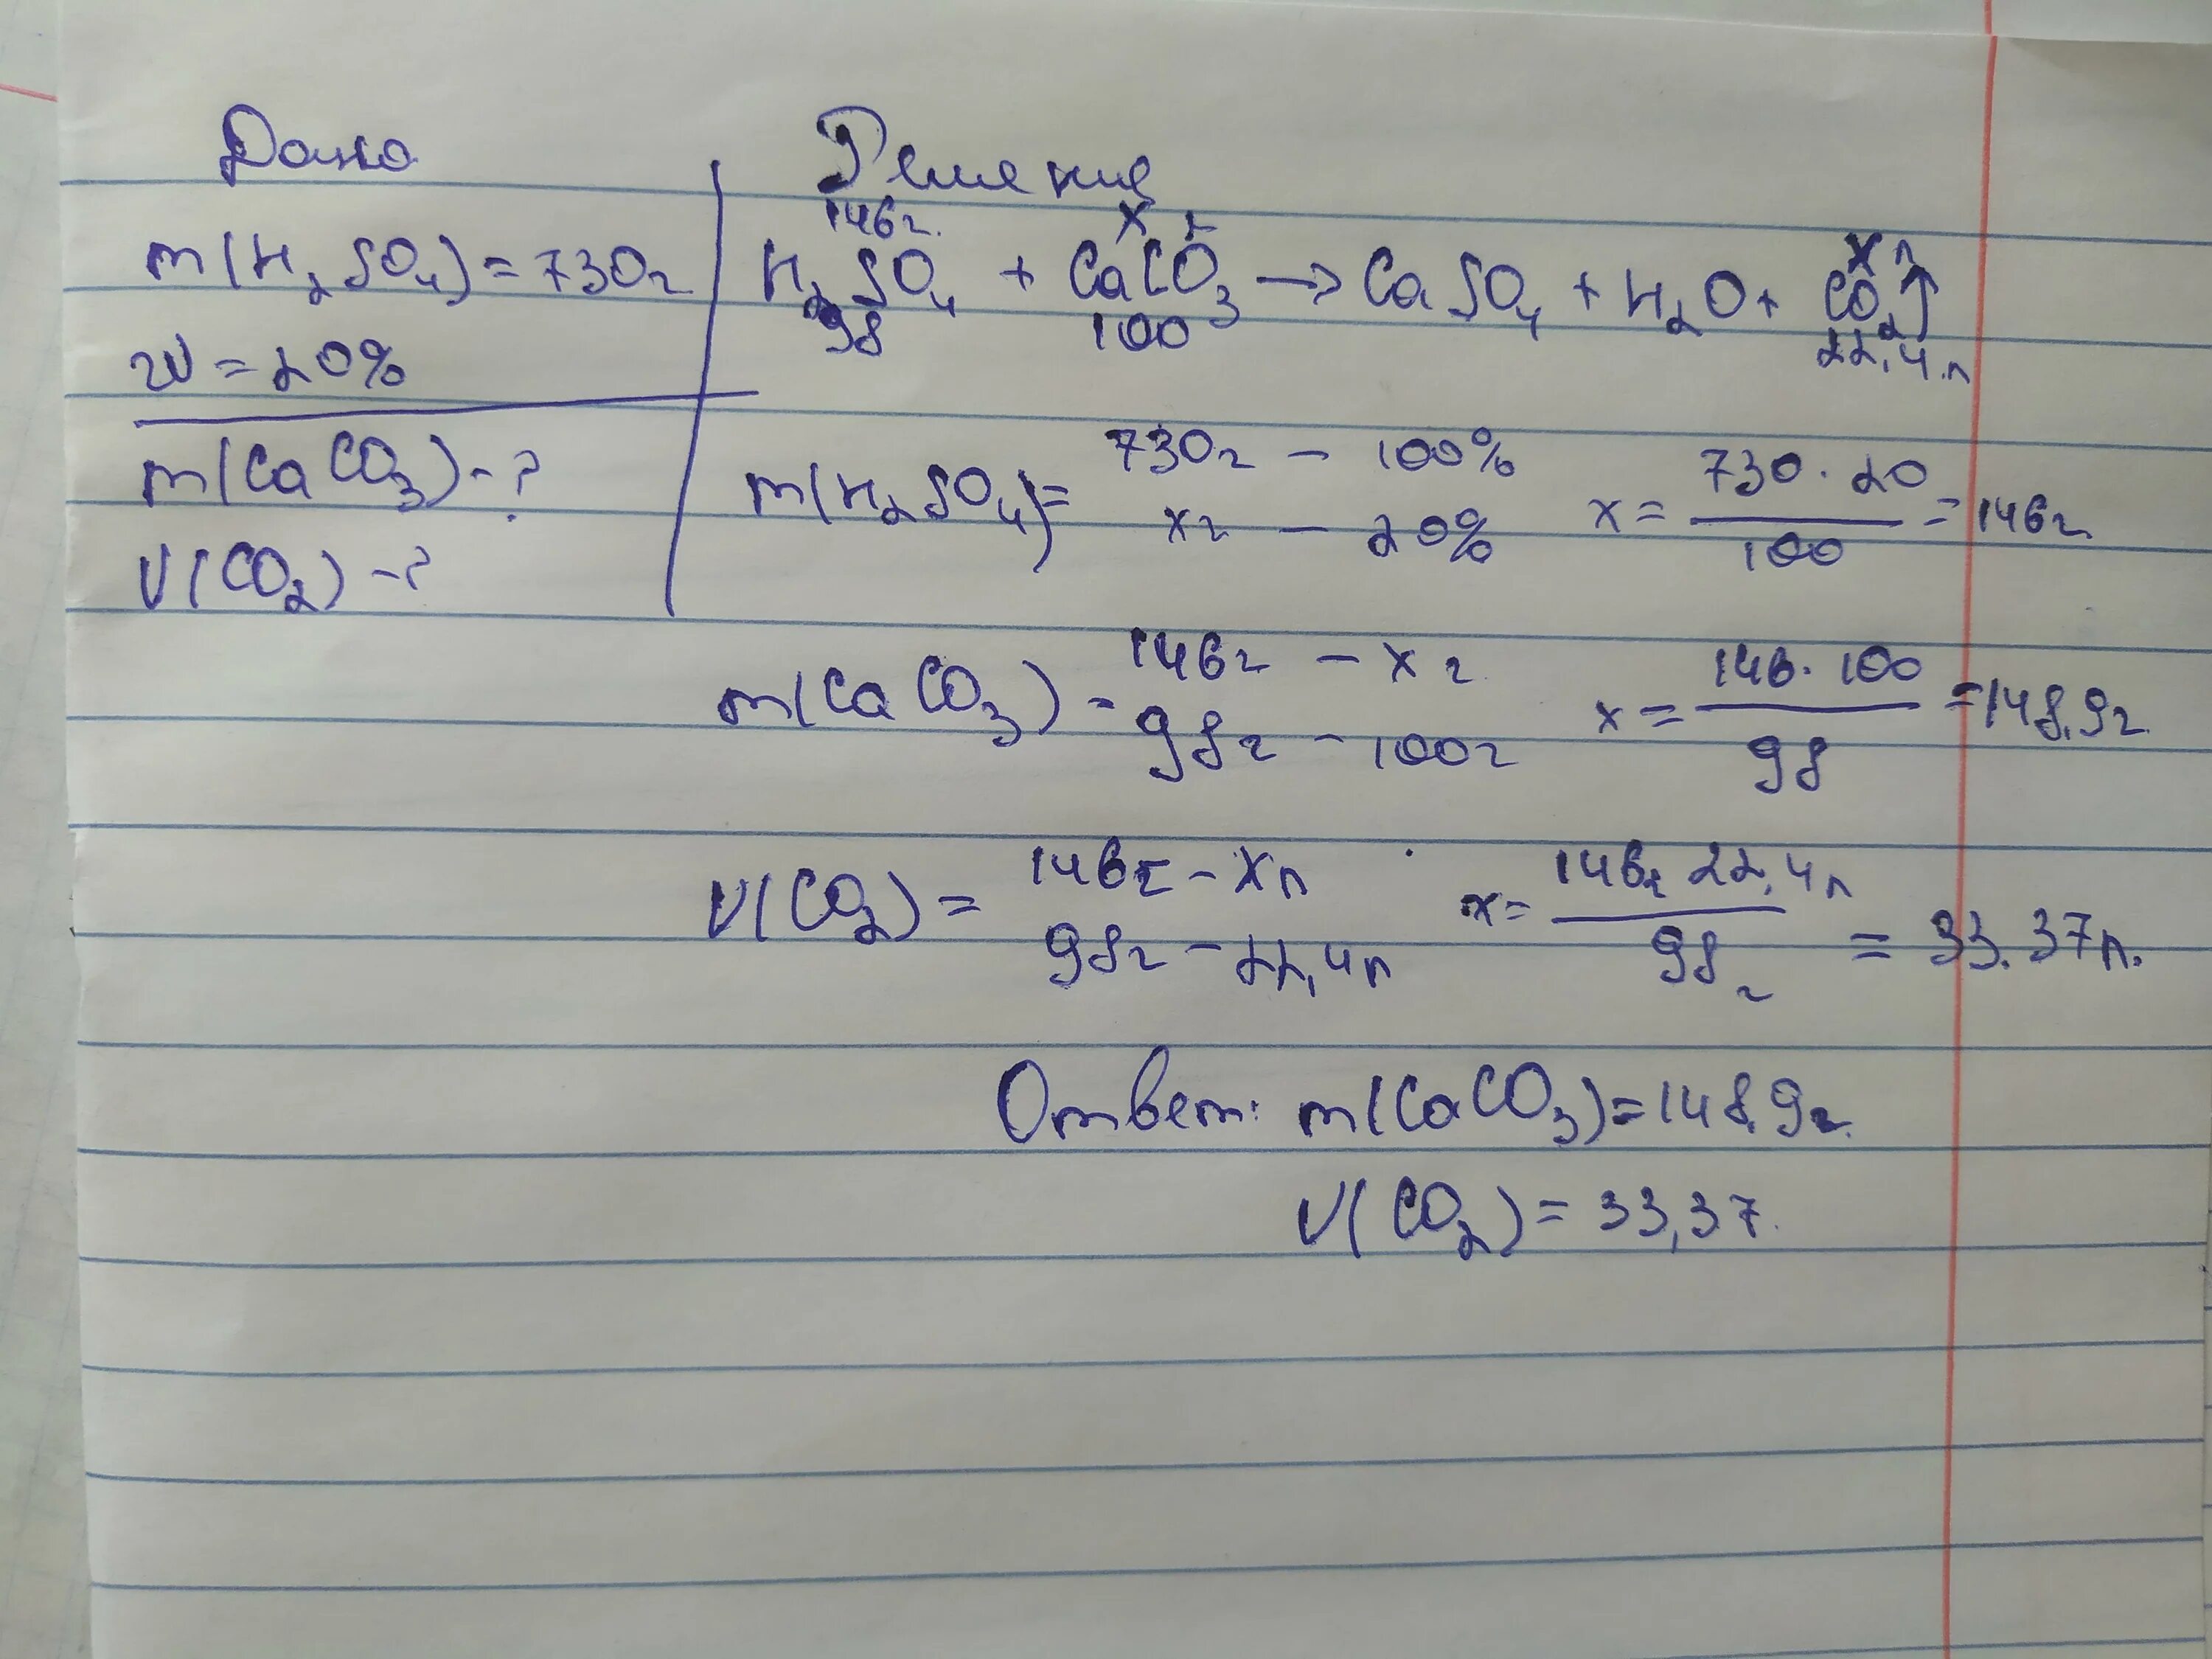 Дано
m(H₂SO₄)=730г
w=20%
m(CaCO₃)-?
V(CO₂)-?
Решение
146г. x г x л
H₂SO₄ + CaCO₃ → CaSO₄ + H₂O + CO₂↑
98 100 22,4 л
m(H₂SO₄)= 730г — 100%
xг — 20%
x = 730·20 / 100 = 146г
m(CaCO₃) = 146г — x г
98г - 100г
x = 146·100 / 98 = 148,9г
V(CO₂) = 146г - xл
98г - 22,4л
x = 146г 22,4л / 98г = 33.37л.
Ответ: m(CaCO₃)=148,9г.
V(CO₂) = 33,37.